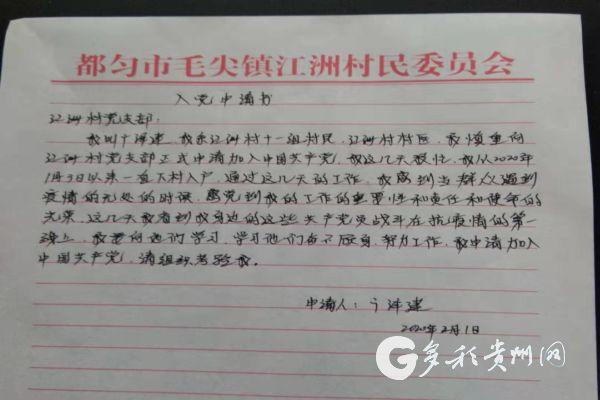 都匀市毛尖镇江洲村民委员会
入党申请书
江洲村党支部:
我叫 建,我系江洲村十一组村民,江洲村村医,我慎重向
江洲村党支部正式申请加入中国共产党,我这几天 ,我从2020年
1月3日以来一直下村入户,通过这几天的工作,我感到当群众遇到
疫情 的时候,感觉到我的工作的重要性和责任和使命的
光荣,这几天我看到我身边的这些共产党员战斗在抗疫情的第一
线上,我要向他们学习,学习他们 ,努力工作,我申请加入
中国共产党,请组织考验我。
申请人: 建
2020年2月1日
多彩贵州网